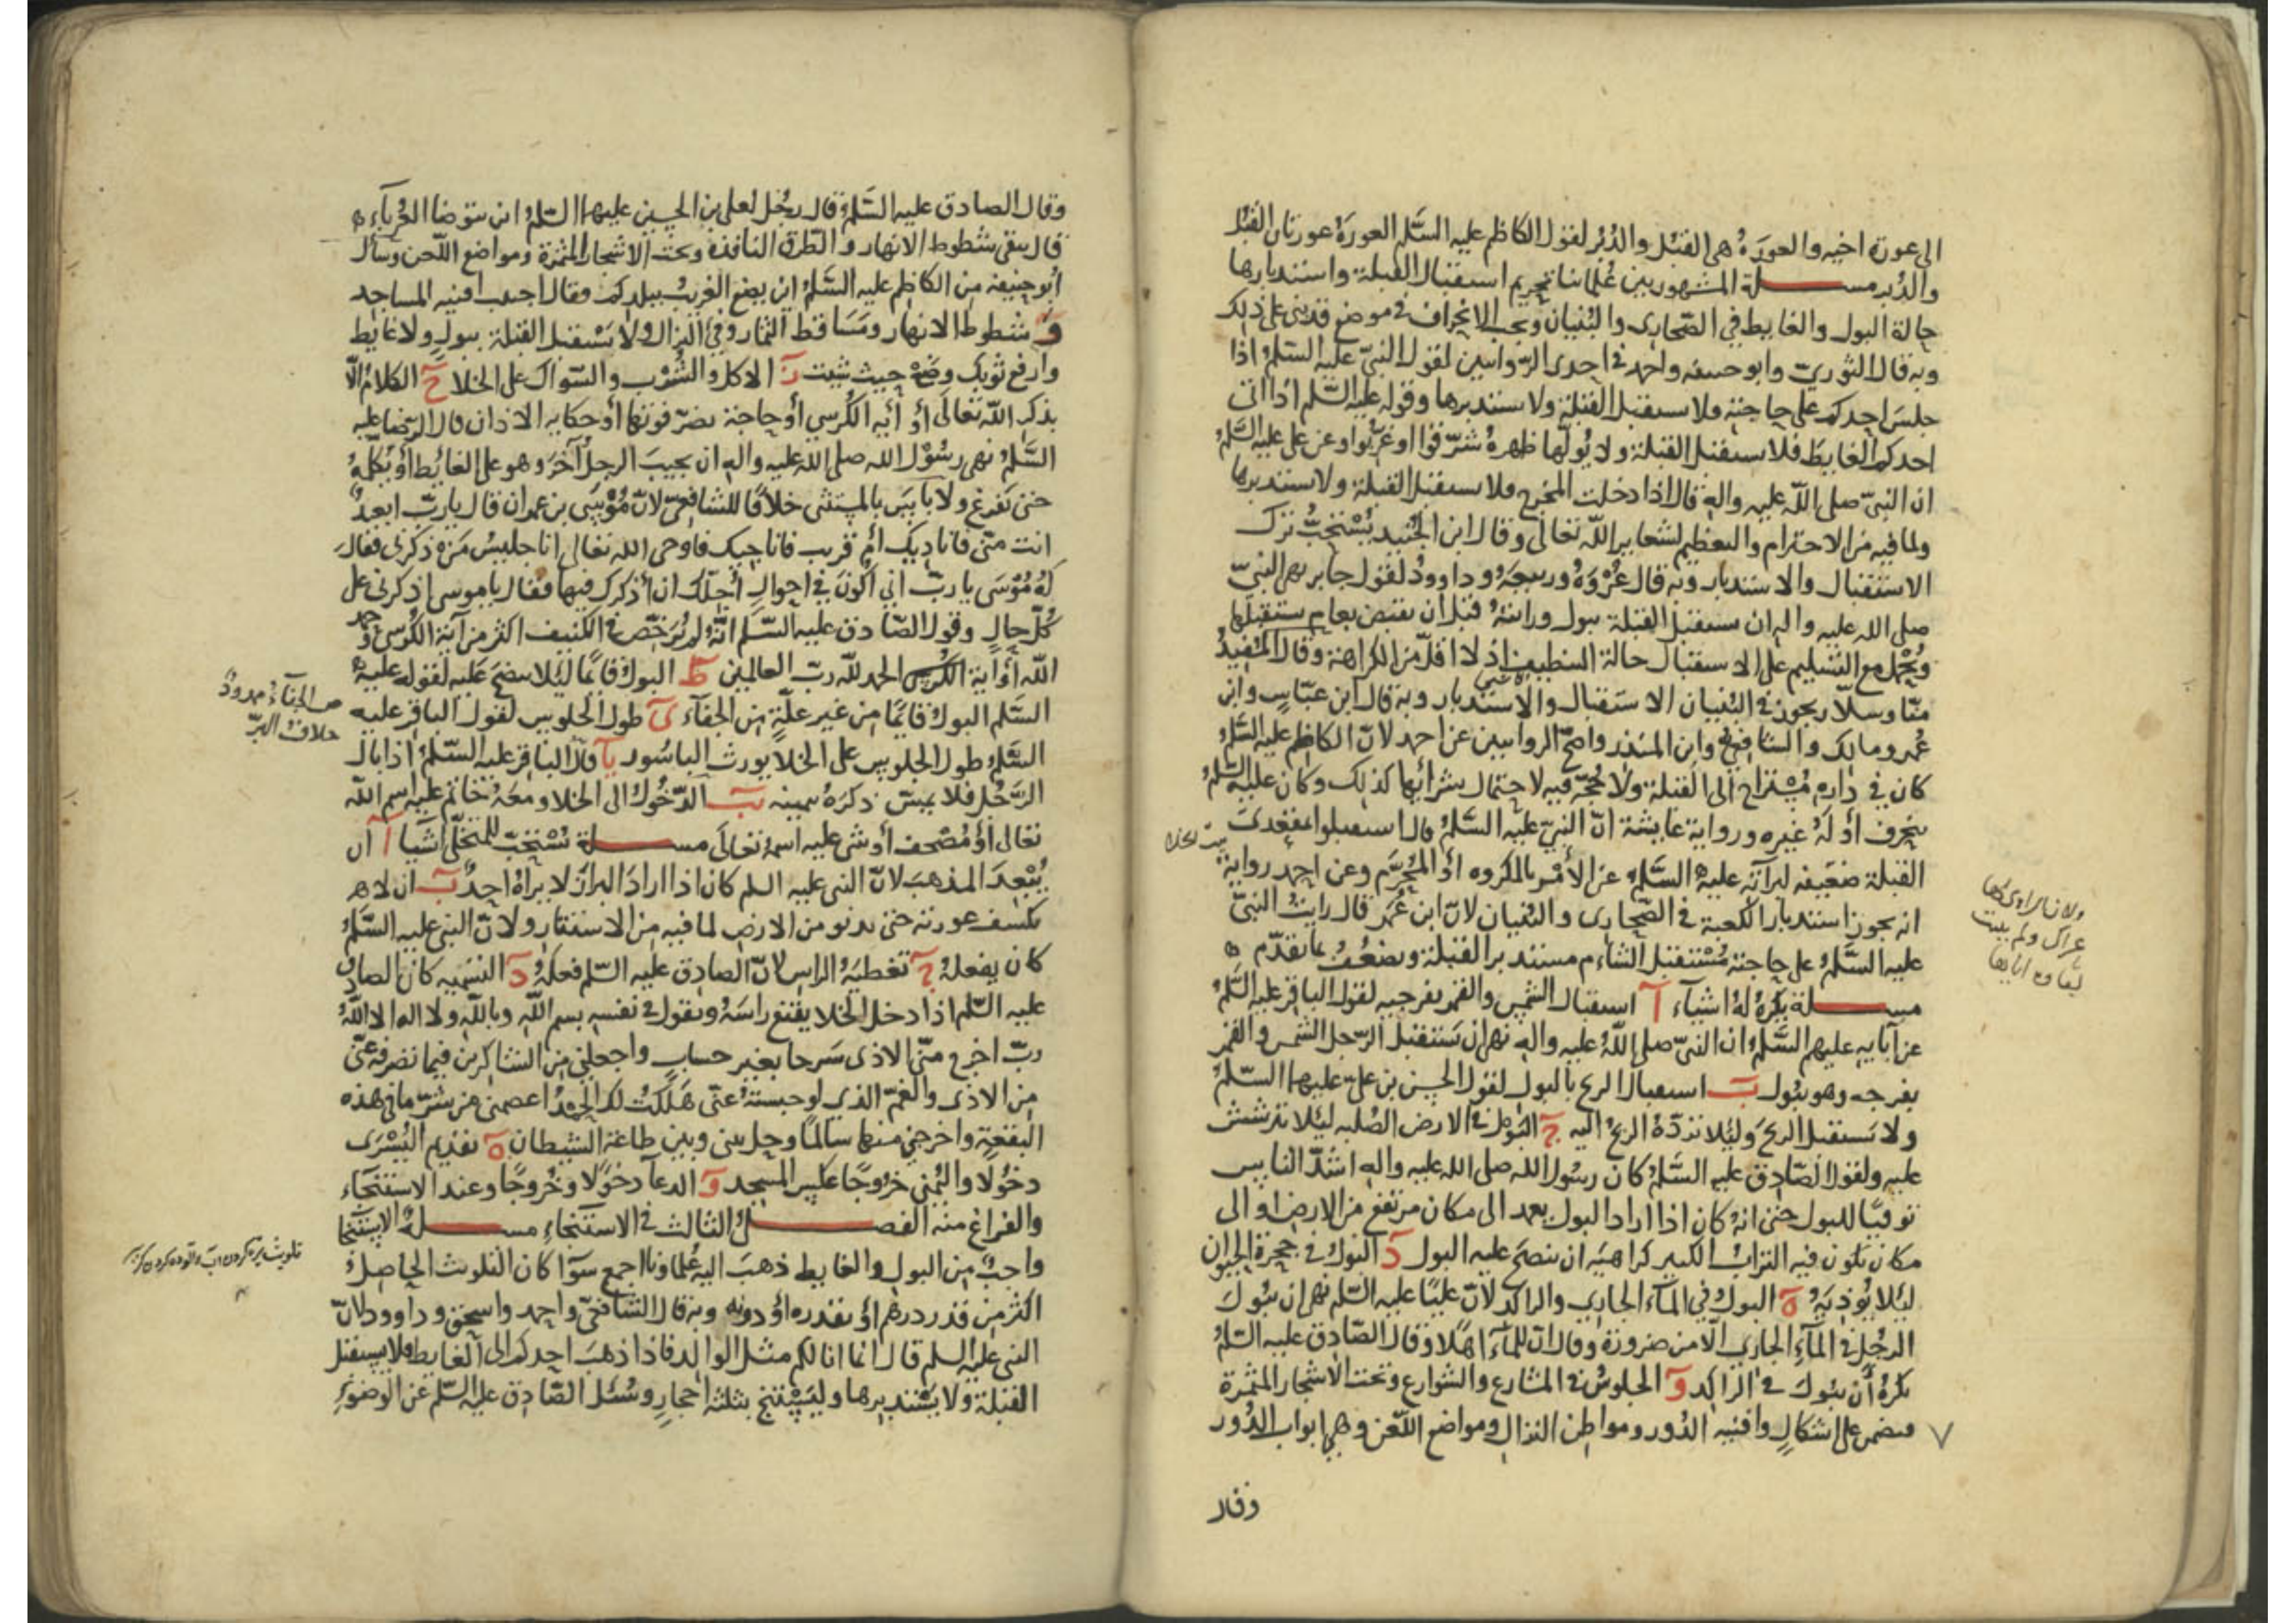 الى عورة اخيه والعورة هى القبل والدبر لقول الكاظم عليه السلم العورة عورتان القبل
والدبر مسلة المشهور بين علمائنا تحريم استقبال القبلة واستدبارها
حالة البول والغايط في الصحارى والبنيان ويجب الانحراف في موضع قد بنى على ذلك
وبه قال الثورى وابو حنيفه واحمد في احدى الروايتين لقول النبى عليه السلم اذا
جلس احدكم على حاجته فلا يستقبل القبلة ولا يستدبرها وقوله عليه السلم اذا اتى
احدكم الغايط فلا يستقبل القبلة ولا يولها ظهره شرقوا او غربوا وعن على عليه السلم
ان النبى صلى الله عليه واله قال اذا دخلت المخرج فلا تستقبل القبلة ولا تستدبرها
ولما فيه من الاحترام والتعظيم لشعاير الله تعالى وقال ابن الجنيد يستحب ترك
الاستقبال والاستدبار وبه قال عروة وربيعة وداوود لقول جابر نهى النبى
صلى الله عليه واله ان نستقبل القبلة ببول ورايته قبل ان يقبض بعام يستقبلها
ويحمل مع التسليم على الاستقبال حالة التنظيف اذ لا اقل من الكراهة وقال المفيد
منا وسلار يجوز في البنيان الاستقبال والاستدبار وبه قال ابن عباس وابن
عمر ومالك والشافعى وابن المنذر واصح الروايتين عن احمد لان الكاظم عليه السلم
كان في داره مستراح الى القبلة ولا حجة فيه لاحتمال شرائها كذلك وكان عليه السلم
ينحرف او له غيره ورواية عايشة ان النبى عليه السلم قال استقبلوا بمقعدتى
القبلة ضعيفه لبرآته عليه السلم عن الأمر بالمكروه او المحرم وعن احمد رواية
انه يجوز استدبار الكعبة في الصحارى والبنيان لان ابن عمر قال رايت النبى
عليه السلم على حاجته مستقبل الشام مستدبر القبلة ويضعف بما تقدم
مسلة يكره له اشياء آ استقبال الشمس والقمر بفرجيه لقول الباقر عليه السلم
عن آبايه عليهم السلم ان النبى صلى الله عليه واله نهى ان يستقبل الرجل الشمس والقمر
بفرجه وهو يبول ب استقبال الريح بالبول لقول الحسن بن على عليهما السلم
ولا تستقبل الريح ولئلا تردّه الريح اليه ج البول في الارض الصلبه ليئلا يترشش
عليه ولقول الصادق عليه السلم كان رسول الله صلى الله عليه واله اشد الناس
توقيا للبول حتى انه كان اذا اراد البول يعمد الى مكان مرتفع من الارض او الى
مكان يكون فيه التراب الكثير كراهية ان ينضح عليه البول د البول في جحرة الحيوان
ليئلا يؤذيه ه البول في الماء الجارى والراكد لان عليا عليه السلم نهى ان يبول
الرجل في الماء الجارى الا من ضرورة وقال ان للماء اهلا وقال الصادق عليه السلم
يكره أن يبول في الراكد و الجلوس في المشارع والشوارع وتحت الاشجار المثمرة
فيضمن على اشكال وافنيه الدور ومواطن النزال ومواضع اللعن وهى ابواب الدور
وقال
ولان الراوى لها
عراك ولم يثبت
وقال الصادق عليه السلم قال رجل لعلى بن الحسين عليهما السلم اين يتوضا الغرباء
قال يتقى شطوط الانهار والطرق النافذه وتحت الاشجار المثمرة ومواضع اللعن وسأل
ابو حنيفه من الكاظم عليه السلم اين يضع الغريب ببلدكم فقال اجتنب افنيه المساجد
و شطوط الانهار ومساقط الثمار وفئ النزال ولا تستقبل القبلة ببول ولا غايط
وارفع ثوبك وضع حيث شيت ز الاكل والشرب والسواك على الخلا ح الكلام الا
بذكر الله تعالى أو أيه الكرسي أو حاجة يضر فوتها أو حكايه الاذان قال الرضا عليه
السلم نهى رسول الله صلى الله عليه واله ان يجيب الرجل آخر وهو على الغائط أو يكلمه
حتى يفرغ ولا باس بالمستثنى خلافا للشافعى لان موسى بن عمران قال يا رب ابعيد
انت منى فاناديك أم قريب فاناجيك فاوحى الله تعالى انا جليس من ذكرنى فقال
له موسى يا رب انى أكون في احوال أجلك ان أذكرك فيها فقال يا موسى اذكرنى على
كل حال وقول الصادق عليه السلم انه لم يرخص في الكنيف اكثر من آية الكرسى وحمد
الله أو آية الحمد لله رب العالمين ط البول قائما ليلا ينضح عليه لقوله عليه
السلم البول قائما من غير علة من الجفآء ى طول الجلوس لقول الباقر عليه
السلم طول الجلوس على الخلا يورث الباسور يا قال الباقر عليه السلم اذا بال
الرجل فلا يمس ذكره بيمينه يب الدخول الى الخلا ومعه خاتم عليه اسم الله
تعالى او مصحف أو شى عليه اسمه تعالى مسلة يستحب للمتخلى اشيا آ ان
يبعد المذهب لان النبى عليه السلم كان اذا اراد البراز لا يراه احد ب ان لا
يكشف عورته حتى يدنو من الارض لما فيه من الاستتار ولان النبى عليه السلم
كان يفعله ج تغطية الراس لان الصادق عليه السلم فعله د التسميه كان الصادق
عليه السلم اذا دخل الخلا يقنع راسه ويقول في نفسه بسم الله وبالله ولا اله الا الله
رب اخرج منى الاذى سرحا بغير حساب واجعلنى من الشاكرين فيما تصرفه عنى
من الاذى والغم الذى لو حبسته عنى هلكت لك الحمد اعصمنى من شر ما في هذه
البقعة واخرجنى منها سالما وحل بينى وبين طاعة الشيطان ه تقديم اليسرى
دخولا واليمنى خروجا عكس المسجد و الدعآ دخولا وخروجا وعند الاستنجاء
والفراغ منه الفصل الثالث في الاستنجاء مسلة الاستنجا
واجب من البول والغايط ذهب اليه علماونا اجمع سوآ كان التلوث الحاصل
اكثر من قدر درهم او بقدره أو دونه وبه قال الشافعى واحمد واسحق وداوود لان
النبى عليه السلم قال انما انا لكم مثل الوالد فاذا ذهب احدكم الى الغايط فلا يستقبل
القبلة ولا يستدبرها وليستنج بثلثة احجار وسئل الصادق عليه السلم عن الوضوء
ص الجفآء ممدود
خلاف البرّ